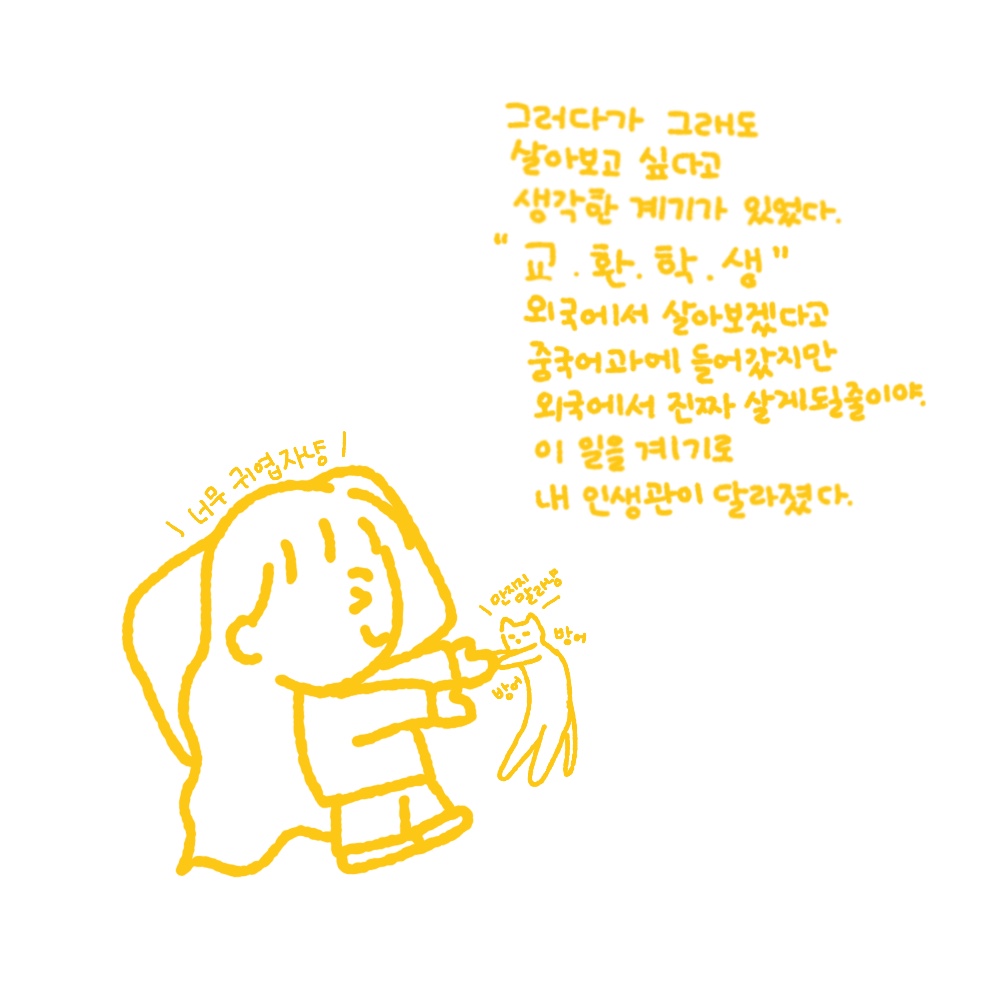 그러다가 그래도
살아보고 싶다고
생각한 계기가 있었다.
"교.환.학.생"
외국에서 살아보겠다고
중국어과에 들어갔지만
외국에서 진짜 살게될줄이야.
이 일을 계기로
내 인생관이 달라졌다.
너무 귀엽자냥
만지지
말라냥
방어
방어